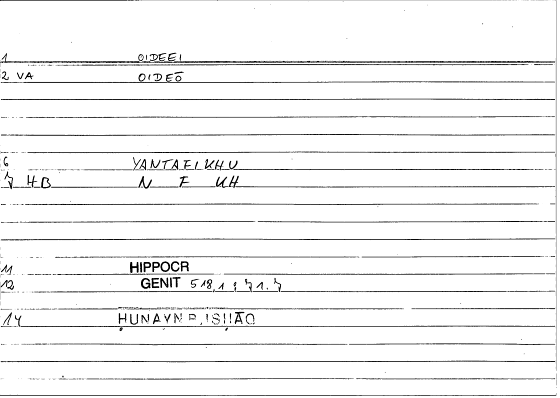 1 OIDEEI
2 VA OIDEŌ
6 YANTAFIKHU
7 HB N F KH
11 HIPPOCR
12 GENIT 518,1 : 71.7
14 ḤUNAYN B. ISḤĀQ